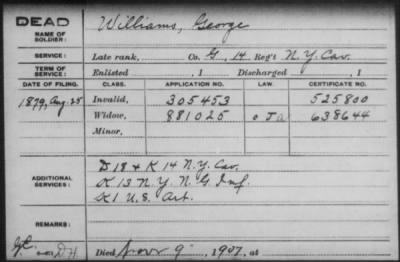 DEAD
NAME OF SOLDIER: Williams, George
SERVICE: Late rank, Co. G, 14 Reg't N.Y. Cav.
TERM OF SERVICE: Enlisted , 1 Discharged , 1
DATE OF FILING. CLASS. APPLICATION NO. LAW. CERTIFICATE NO.
1879, Aug. 25 Invalid, 305453 525800
Widow, 881025 638644
Minor,
ADDITIONAL SERVICES: D 18 & K 14 N.Y. Cav.
K 13 N.Y. N G Inf.
K 1 U.S. Art.
REMARKS:
Died Nov 9, 1907, at